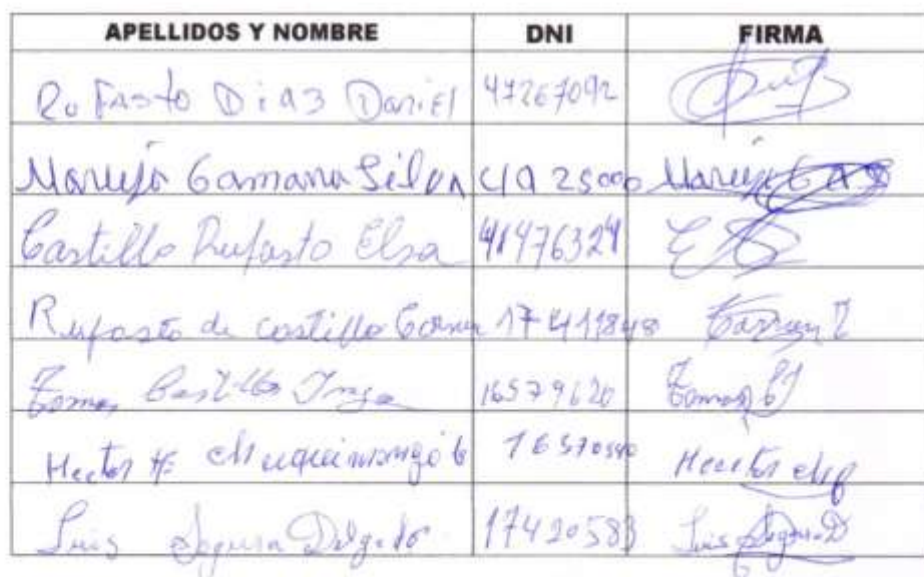 APELLIDOS Y NOMBRE DNI FIRMA
Rufasto Diaz Daniel 47267092
Maruja Gamarra Silva
Castillo Rufasto Elsa 41476324
Rufasto de Castillo Carmen Carmen
Tomas Castillo Inga 16579620 Tomas
Hector Chuquimango Hector
Luis Segura Delgado 17420583 Luis Segura D